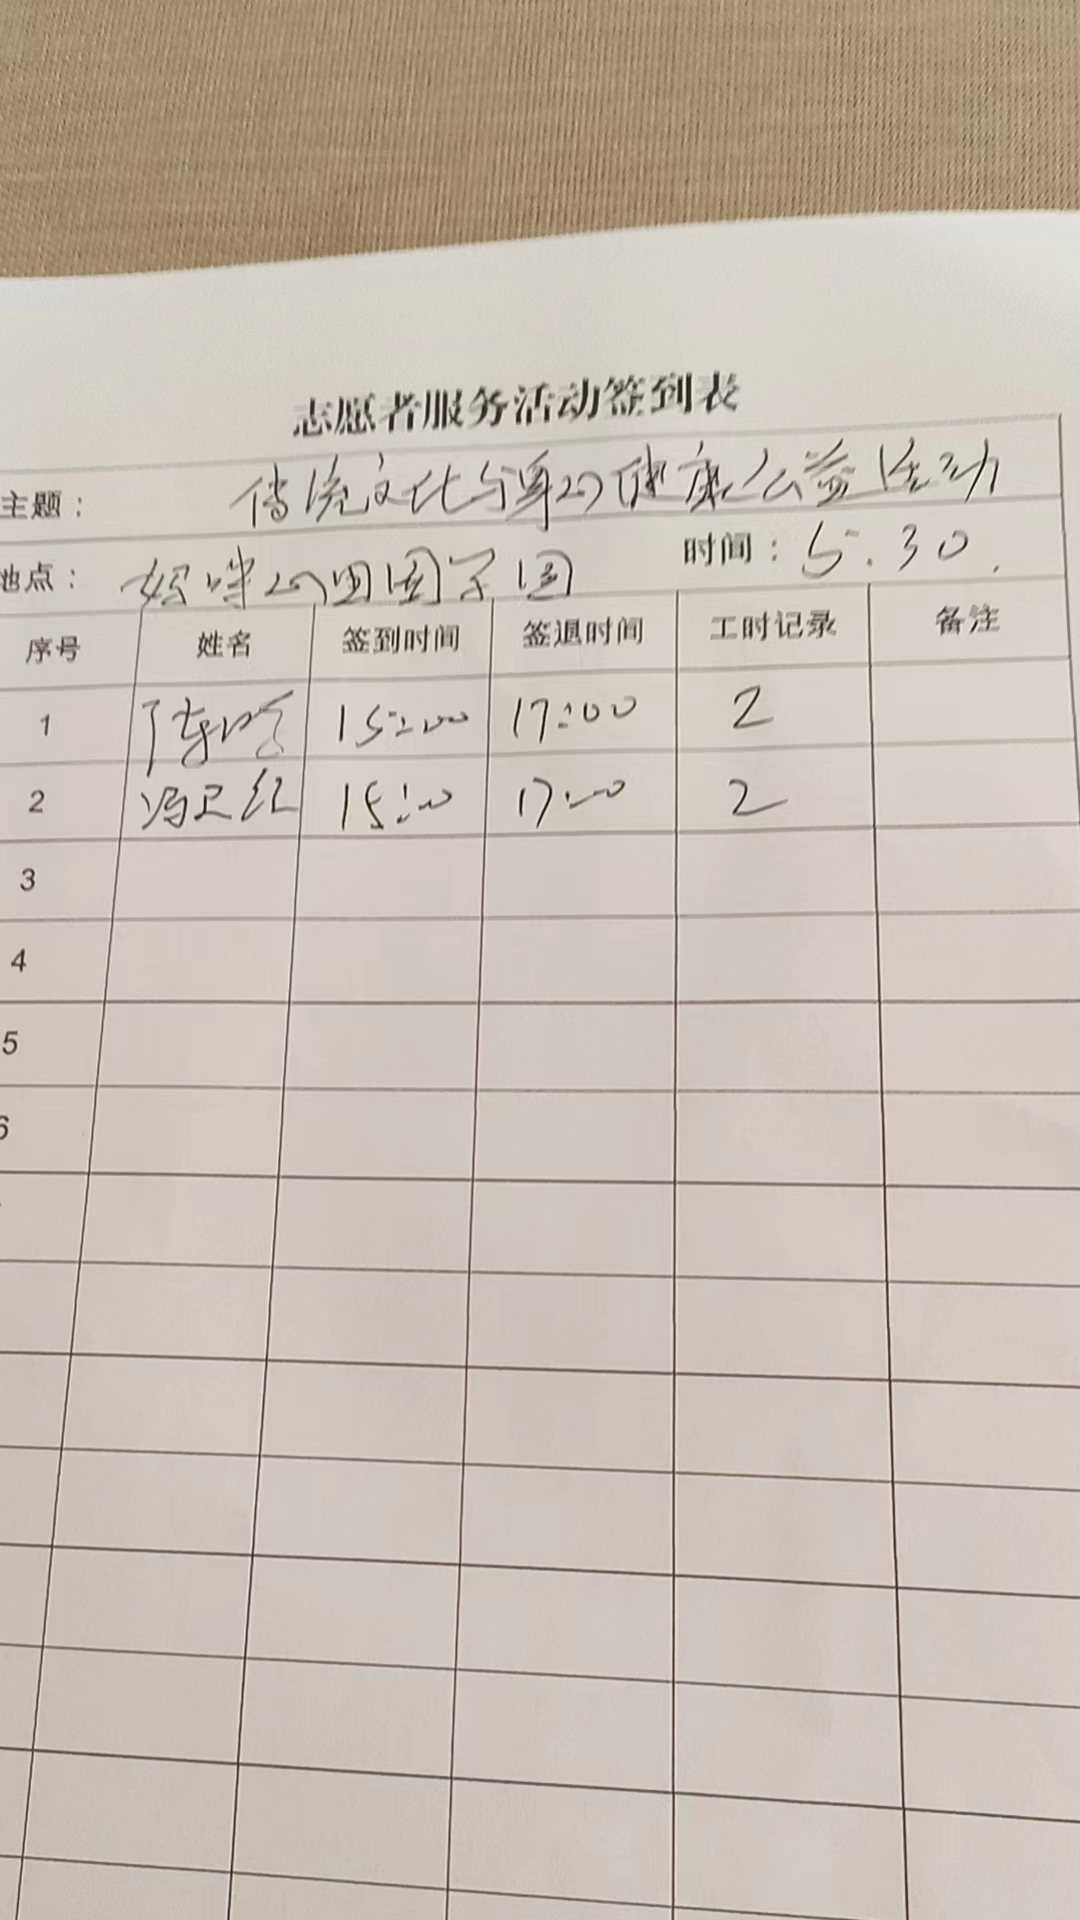 志愿者服务活动签到表
主题： 传统文化与身心健康公益活动
地点： 心田国学园 时间：5.30.
序号 姓名 签到时间 签退时间 工时记录 备注
1 陈 15:00 17:00 2
2 冯卫红 15:00 17:00 2
3
4
5
6